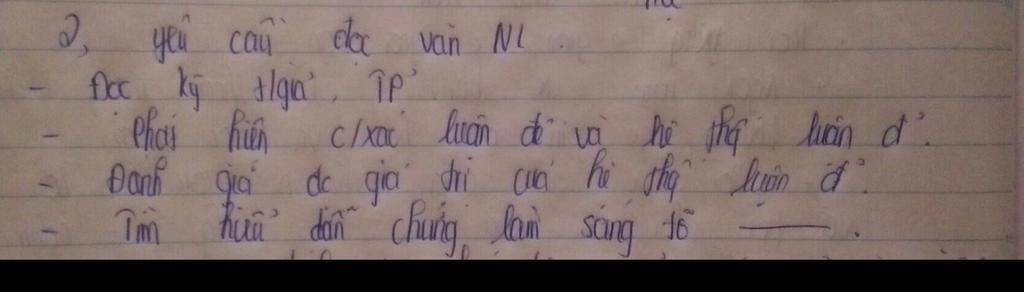 2, yêu cầu đọc văn NL.
- Đọc kỹ t/giả, TP
- Phát hiện c/xác luận đề và hệ thg luận đ'.
- Đánh giá dc giá trị của hệ thg luận đ'.
- Tìm hiểu dẫn chứng làm sáng tỏ ——.